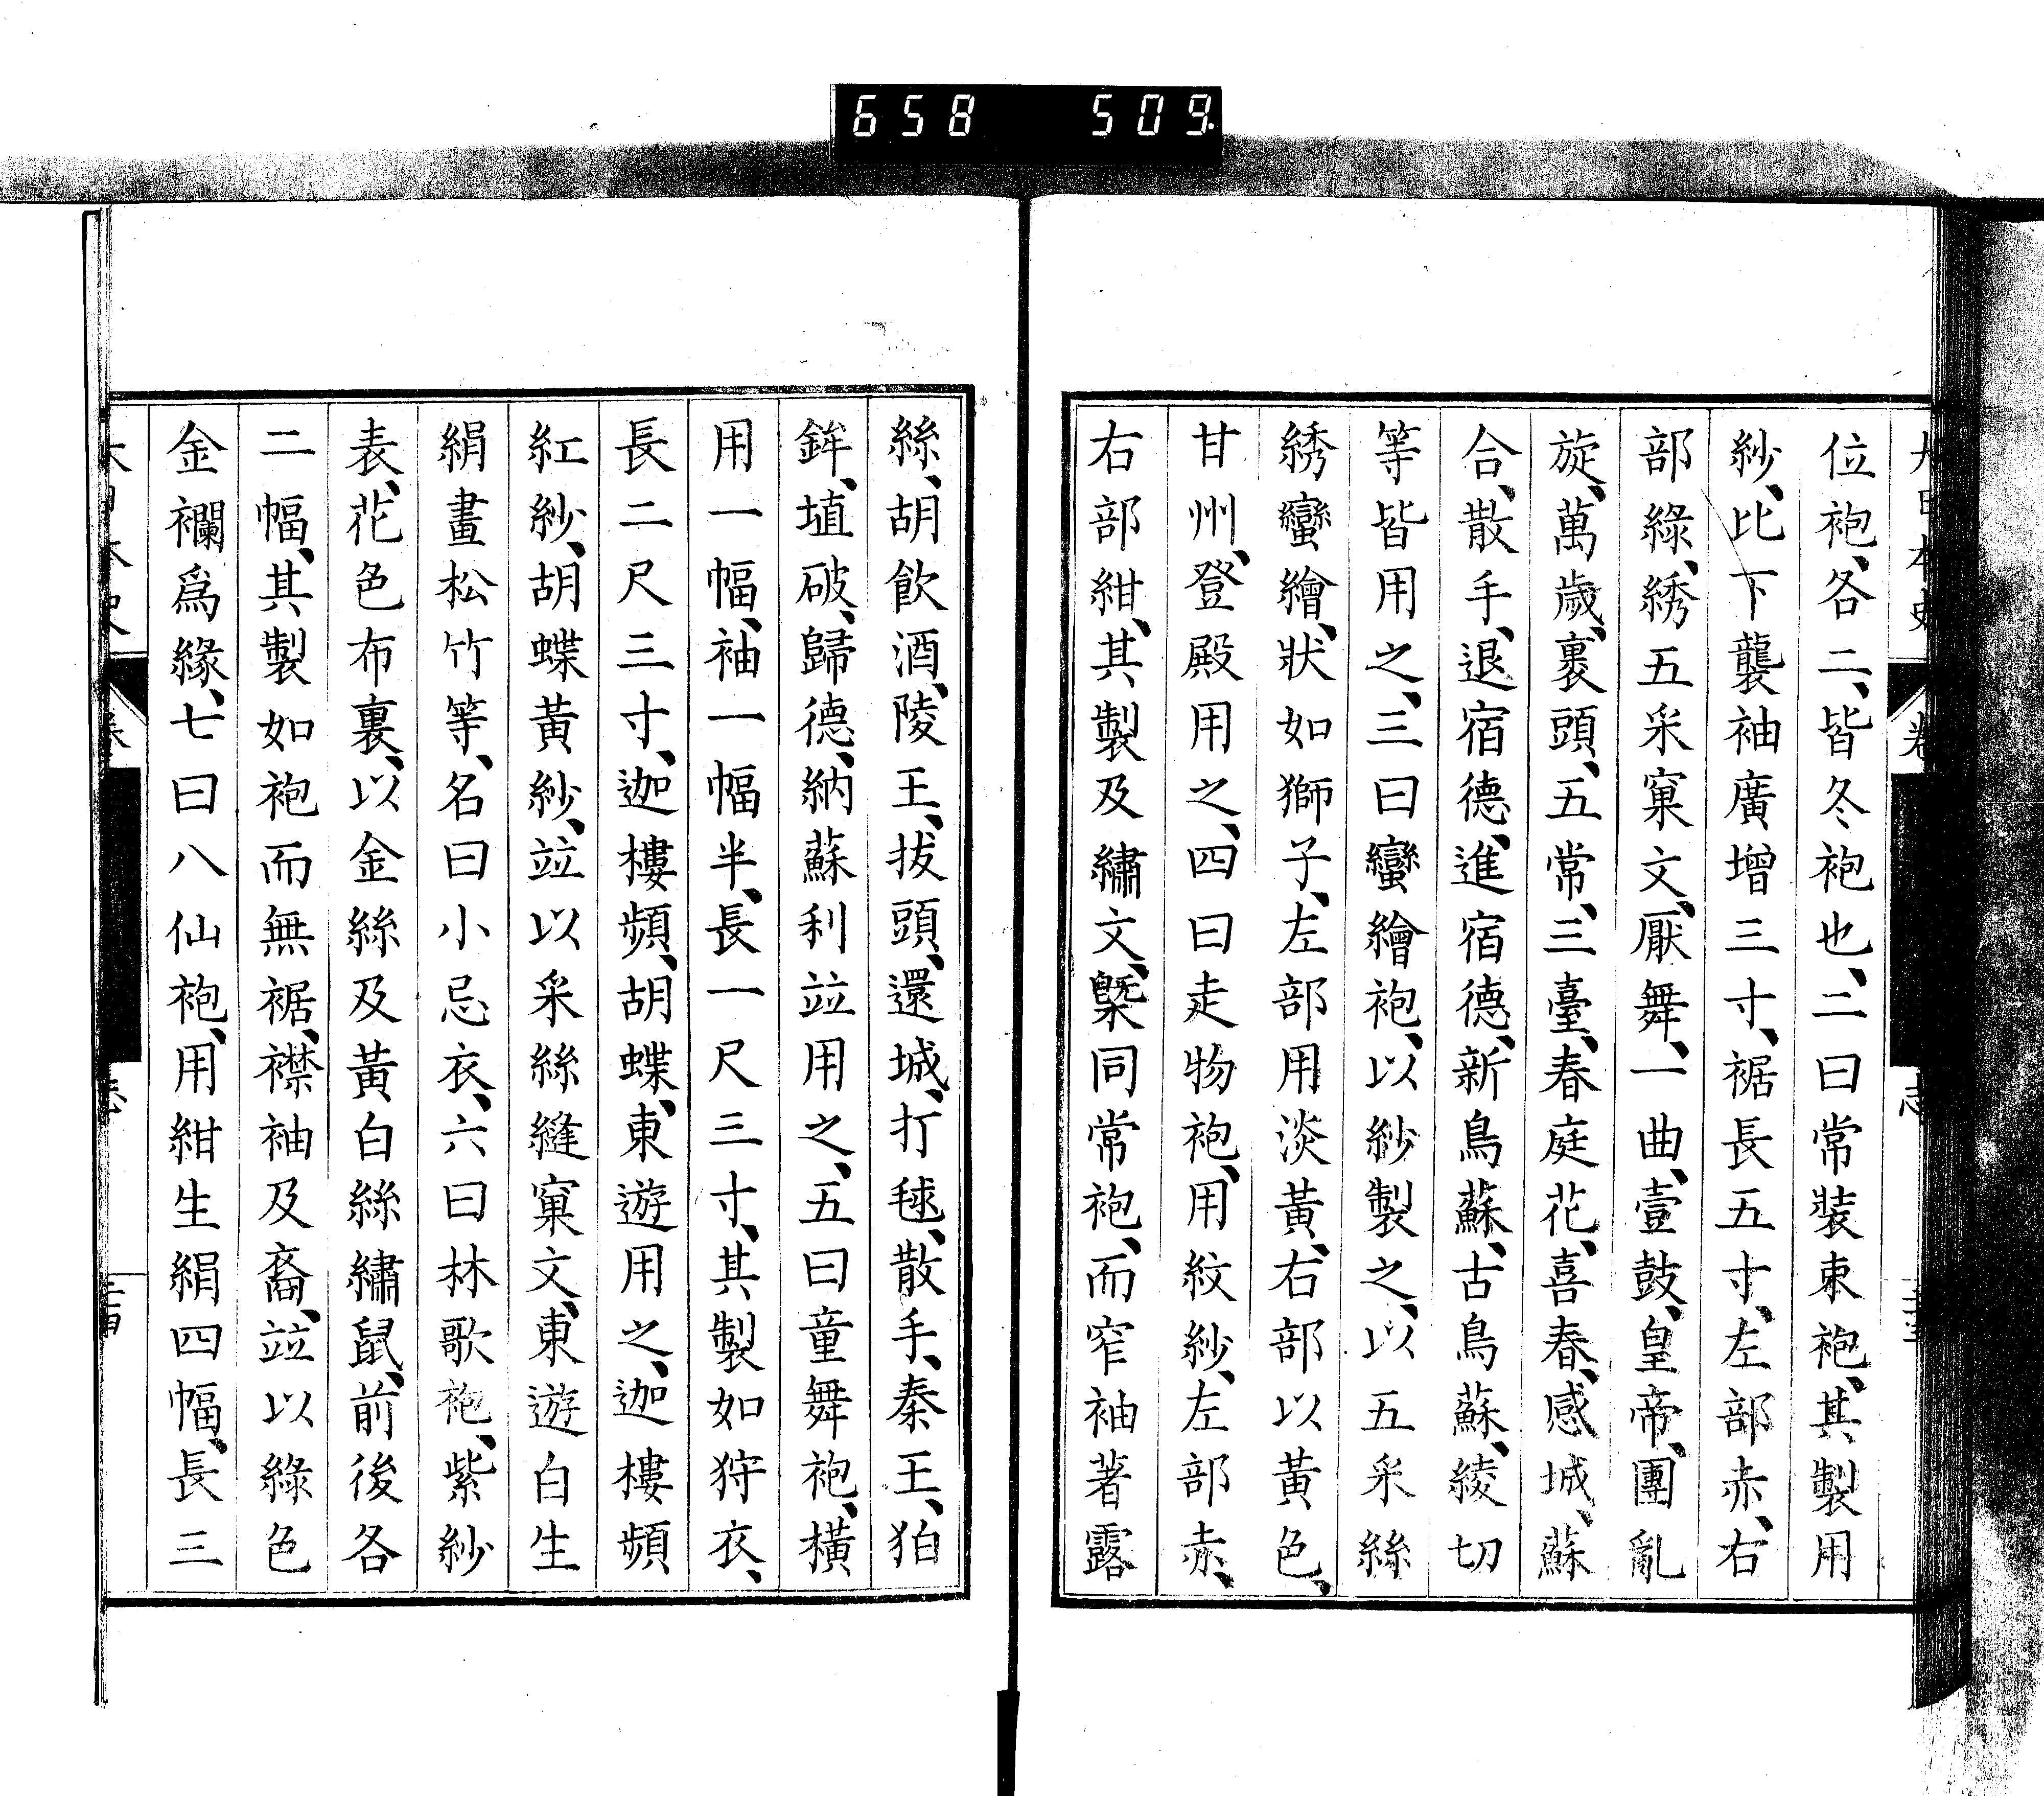 658 509
位袍、各二、皆冬袍也、二曰常裝束袍、其製用
紗、比下襲袖廣增三寸、裾長五寸、左部赤、右
部綠、綉五釆窠文、厭舞、一曲、壹鼓、皇帝、團亂
旋、萬歲、裹頭、五常、三臺、春庭花、喜春、感城、蘇
合、散手、退宿德、進宿德、新鳥蘇、古鳥蘇、綾切
等皆用之、三曰蠻繪袍、以紗製之、以五釆絲
綉蠻繪、狀如獅子、左部用淡黃、右部以黃色、
甘州、登殿用之、四曰走物袍、用紋紗、左部赤、
右部紺、其製及繡文、槩同常袍、而窄袖著露
絲、胡飲酒、陵王、拔頭、還城、打毬、散手、秦王、狛
鉾、埴破、歸德、納蘇利竝用之、五曰童舞袍、橫
用一幅、袖一幅半、長一尺三寸、其製如狩衣、
長二尺三寸、迦樓頻、胡蝶、東遊用之、迦樓頻
紅紗、胡蝶黃紗、竝以釆絲縫窠文、東遊白生
絹畫松竹等、名曰小忌衣、六曰林歌袍、紫紗
表、花色布裏、以金絲及黃白絲繡鼠、前後各
二幅、其製如袍而無裾、襟袖及裔、竝以綠色
金襴爲緣、七曰八仙袍、用紺生絹四幅、長三